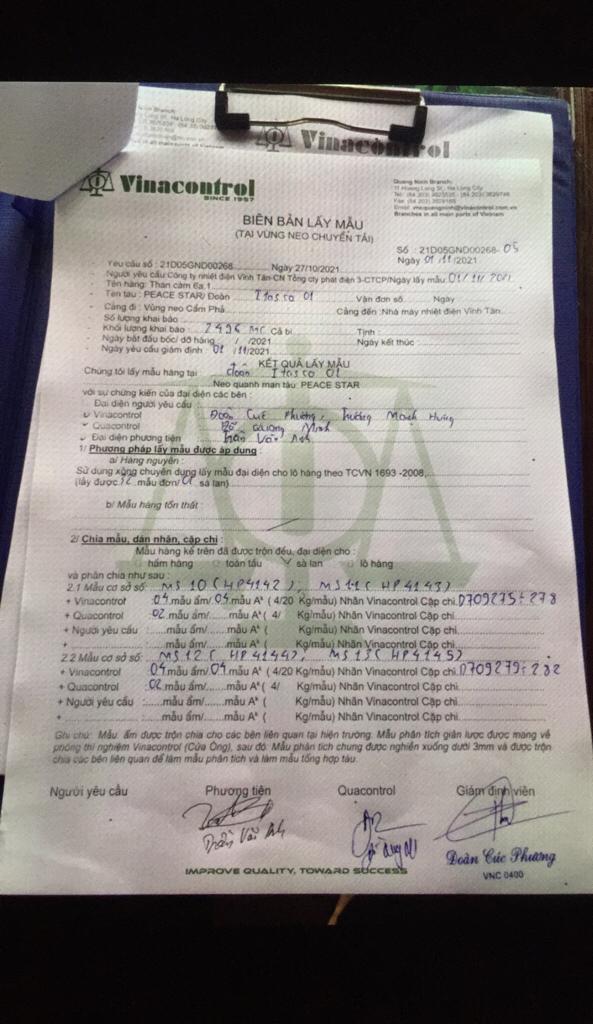 Vinacontrol
Vinacontrol
SINCE 1957
Quang Ninh Branch:
11 Hoang Long St., Ha Long City
Branches in all main ports of Vietnam
BIÊN BẢN LẤY MẪU
(TẠI VÙNG NEO CHUYỂN TẢI)
Số : 21D05GND00268-05
Ngày 01/11/2021
Yêu cầu số : 21D05GND00268 Ngày 27/10/2021
- Người yêu cầu Công ty nhiệt điện Vĩnh Tân-CN Tổng cty phát điện 3-CTCP/Ngày lấy mẫu 01/11/2021
- Tên hàng: Than cám 6a.1
- Tên tàu : PEACE STAR/ Đoàn Itasco 01 Vận đơn số Ngày
- Cảng đi : Vùng neo Cẩm Phả Cảng đến :Nhà máy nhiệt điện Vĩnh Tân
- Số lượng khai báo
- Khối lượng khai báo : 2496 MT Cả bì Tịnh :
- Ngày bắt đầu bốc/ dỡ hàng / /2021 Ngày kết thúc :
- Ngày yêu cầu giám định : 01 /11/2021
KẾT QUẢ LẤY MẪU
Chúng tôi lấy mẫu hàng tại Đoàn Itasco 01
Neo quanh mạn tàu: PEACE STAR
với sự chứng kiến của đại diện các bên :
- Đại diện người yêu cầu
Vinacontrol : Đoàn Cúc Phương, Trương Mạnh Hưng
Quacontrol
Đại diện phương tiện : Trần Văn Anh
1/ Phương pháp lấy mẫu được áp dụng :
a/ Hàng nguyên :
Sử dụng xẻng chuyên dụng lấy mẫu đại diện cho lô hàng theo TCVN 1693 -2008,
(lấy được 12 mẫu đơn/ 01 sà lan)
b/ Mẫu hàng tổn thất :
2/ Chia mẫu, dán nhãn, cặp chì :
Mẫu hàng kể trên đã được trộn đều, đại diện cho :
hầm hàng toàn tàu sà lan lô hàng
và phân chia như sau :
2.1 Mẫu cơ sở số: MS10 (HP4142), MS11 (HP4143)
+ Vinacontrol 04 mẫu ẩm/ 04 mẫu Aᵏ ( 4/20 Kg/mẫu) Nhãn Vinacontrol Cặp chì. 0709275÷278
+ Quacontrol 02 mẫu ẩm/ mẫu Aᵏ ( 4/ Kg/mẫu) Nhãn Vinacontrol Cặp chì
+ Người yêu cầu : mẫu ẩm/ mẫu Aᵏ ( Kg/mẫu) Nhãn Vinacontrol Cặp chì
+ mẫu ẩm/ mẫu Aᵏ ( Kg/mẫu) Nhãn Vinacontrol Cặp chì
2.2 Mẫu cơ sở số: MS12 (HP4144), MS13 (HP4145)
+ Vinacontrol 04 mẫu ẩm/ 04 mẫu Aᵏ ( 4/20 Kg/mẫu) Nhãn Vinacontrol Cặp chì. 0709279÷282
+ Quacontrol 02 mẫu ẩm/ mẫu Aᵏ ( 4/ Kg/mẫu) Nhãn Vinacontrol Cặp chì
+ Người yêu cầu : mẫu ẩm/ mẫu Aᵏ ( Kg/mẫu) Nhãn Vinacontrol Cặp chì
+ mẫu ẩm/ mẫu Aᵏ ( Kg/mẫu) Nhãn Vinacontrol Cặp chì
Ghi chú: Mẫu ẩm được trộn chia cho các bên liên quan tại hiện trường. Mẫu phân tích giản lược được mang về
phòng thí nghiệm Vinacontrol (Cửa Ông), sau đó: Mẫu phân tích chung được nghiền xuống dưới 3mm và được trộn
chia các bên liên quan để làm mẫu phân tích và làm mẫu tổng hợp tàu.
Người yêu cầu Phương tiện Quacontrol Giám định viên
Trần Văn Anh
Đoàn Cúc Phương
VNC 0400
IMPROVE QUALITY, TOWARD SUCCESS